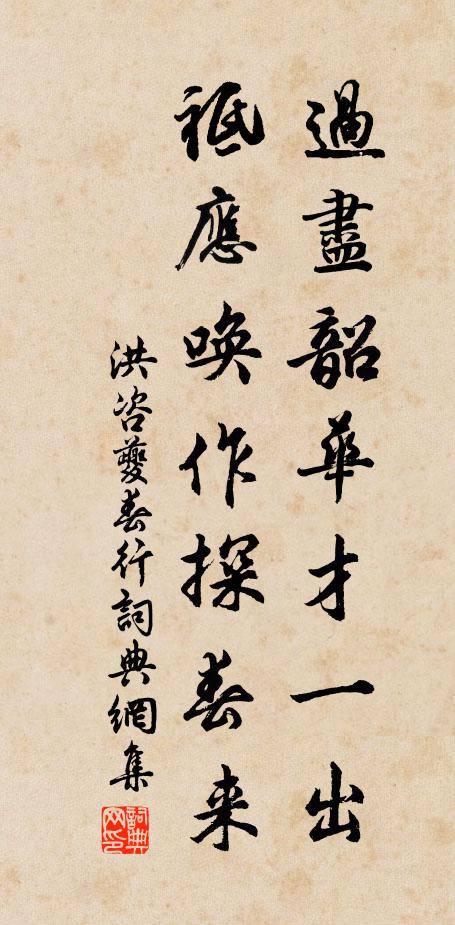 過盡韶華才一出
祗應喚作探春来
洪咨夔春行詞典網集
詞典网印